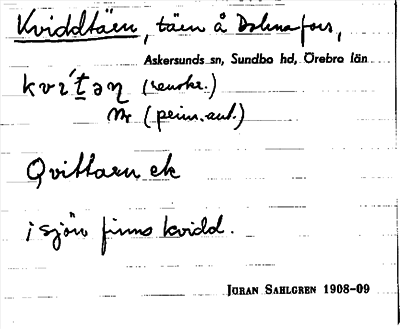 Kviddtäen, täen å Dohnafors,
Askersunds sn, Sundbo hd, Örebro län
kvɪ́t̲əɳ
(prim. ant.)
Qvittarn ek
i sjön finns kvidd.
JÖRAN SAHLGREN 1908-09